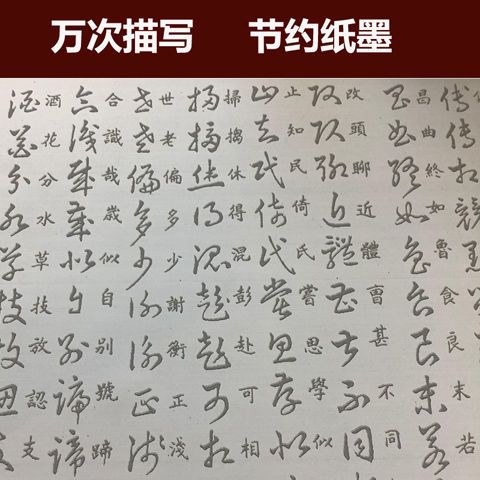 万次描写 节约纸墨
昌曲終如魯食良末若
改頭聊近體曹甚不同
止知民倚氏嘗思學似
掃搗休得混彭赴可相
世老偏多少謝衡正淺
合識哉歲似自别號蹄
酒花分水草技放認支